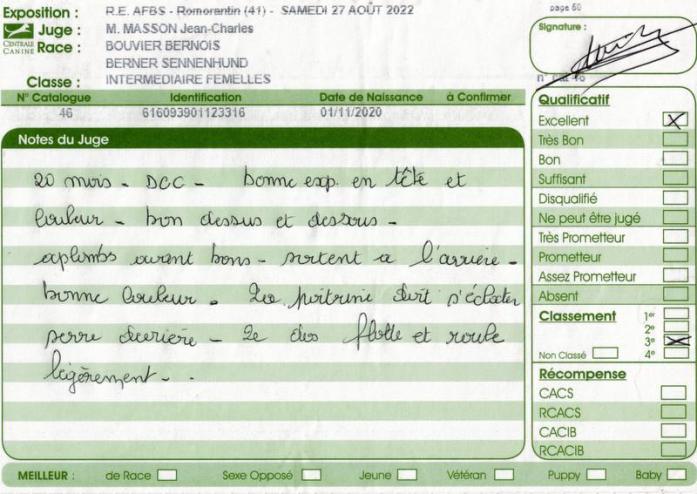 Exposition : R.E. AFBS - Romorantin (41) - SAMEDI 27 AOÛT 2022
page 60
CENTRALE CANINE
Juge : M. MASSON Jean-Charles
Race : BOUVIER BERNOIS
BERNER SENNENHUND
Classe : INTERMEDIAIRE FEMELLES
Signature :
N° Catalogue Identification Date de Naissance à Confirmer
46 616093901123316 01/11/2020
Notes du Juge
20 mois - DCC - bonne exp. en tête et
couleur - bon dessus et dessous -
aplombs avant bons - sortent a l'arrière -
bonne couleur. La poitrine doit s'éclater
serre derriere - Le dos flotte et roule
légèrement - .
Qualificatif
Excellent X
Très Bon
Bon
Suffisant
Disqualifié
Ne peut être jugé
Très Prometteur
Prometteur
Assez Prometteur
Absent
Classement 1er
2e
3e X
Non Classé 4e
Récompense
CACS
RCACS
CACIB
RCACIB
MEILLEUR : de Race Sexe Opposé Jeune Vétéran Puppy Baby